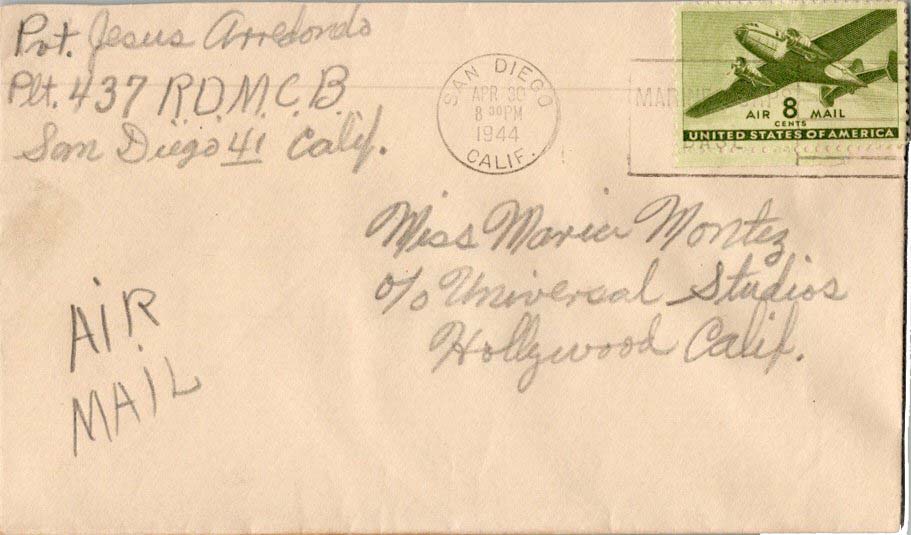 Pvt. Jesus Arredondo
Plt. 437 R.D.M.C.B.
San Diego 41 Calif.
SAN DIEGO
APR 30
8 30 PM
1944
CALIF.
MARINE
AIR 8 MAIL
CENTS
UNITED STATES OF AMERICA
Miss Maria Montez
c/o Universal Studios
Hollywood Calif.
AIR
MAIL